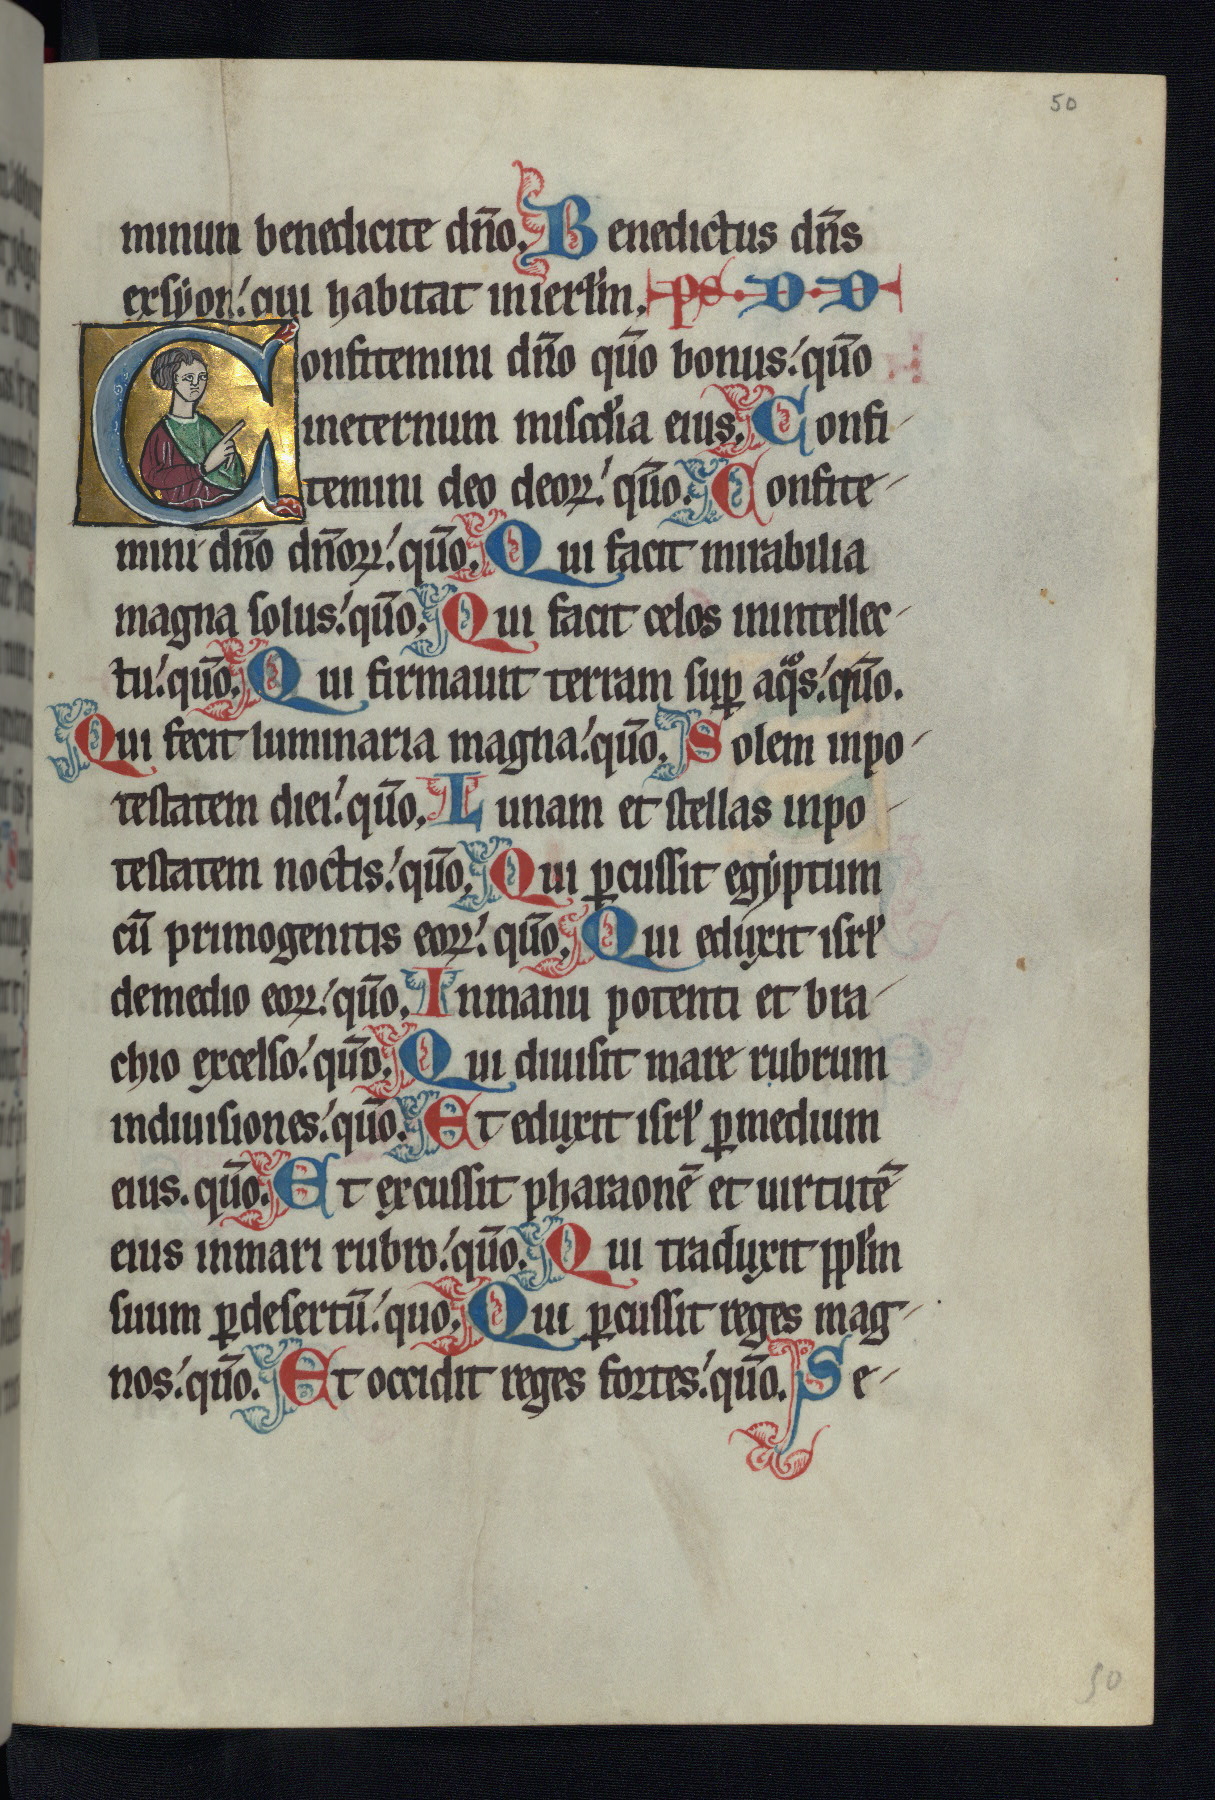 50
minum benedicite dño. Benedictus dñs
exsÿon. qui habitat inierłm. ps. D. D
Confitemini dño qm̄o bonus. quō
ineternum misc̄dia eius. Confi-
temini deo deoꝝ. quō. Confite-
mini dño dñoꝝ. quō. Qui facit mirabilia
magna solus. quō. Qui facit celos inintellec-
tu. quō. Qui firmauit terram suꝑ aqͣs. quō.
Qui fecit luminaria magna. quō. Solem inpo-
testatem diei. quō. Lunam et stellas inpo-
testatem noctis. quō. Qui ꝑcussit egẏptum
cū primogenitis eoꝝ. quō. Qui eduxit isrł
demedio eoꝝ. quō. Inmanu potenti et bra-
chio excelso. quō. Qui diuisit mare rubrum
indiuisiones. quō. Et eduxit isrł ꝑmedium
eius. quō. Et excussit pharaonē et uirtutē
eius inmari rubro. quō. Qui traduxit ppłm
suum ꝑdesertū. quo. Qui ꝑcussit reges mag-
nos. quō. Et occidit reges fortes. quō. Se-
50